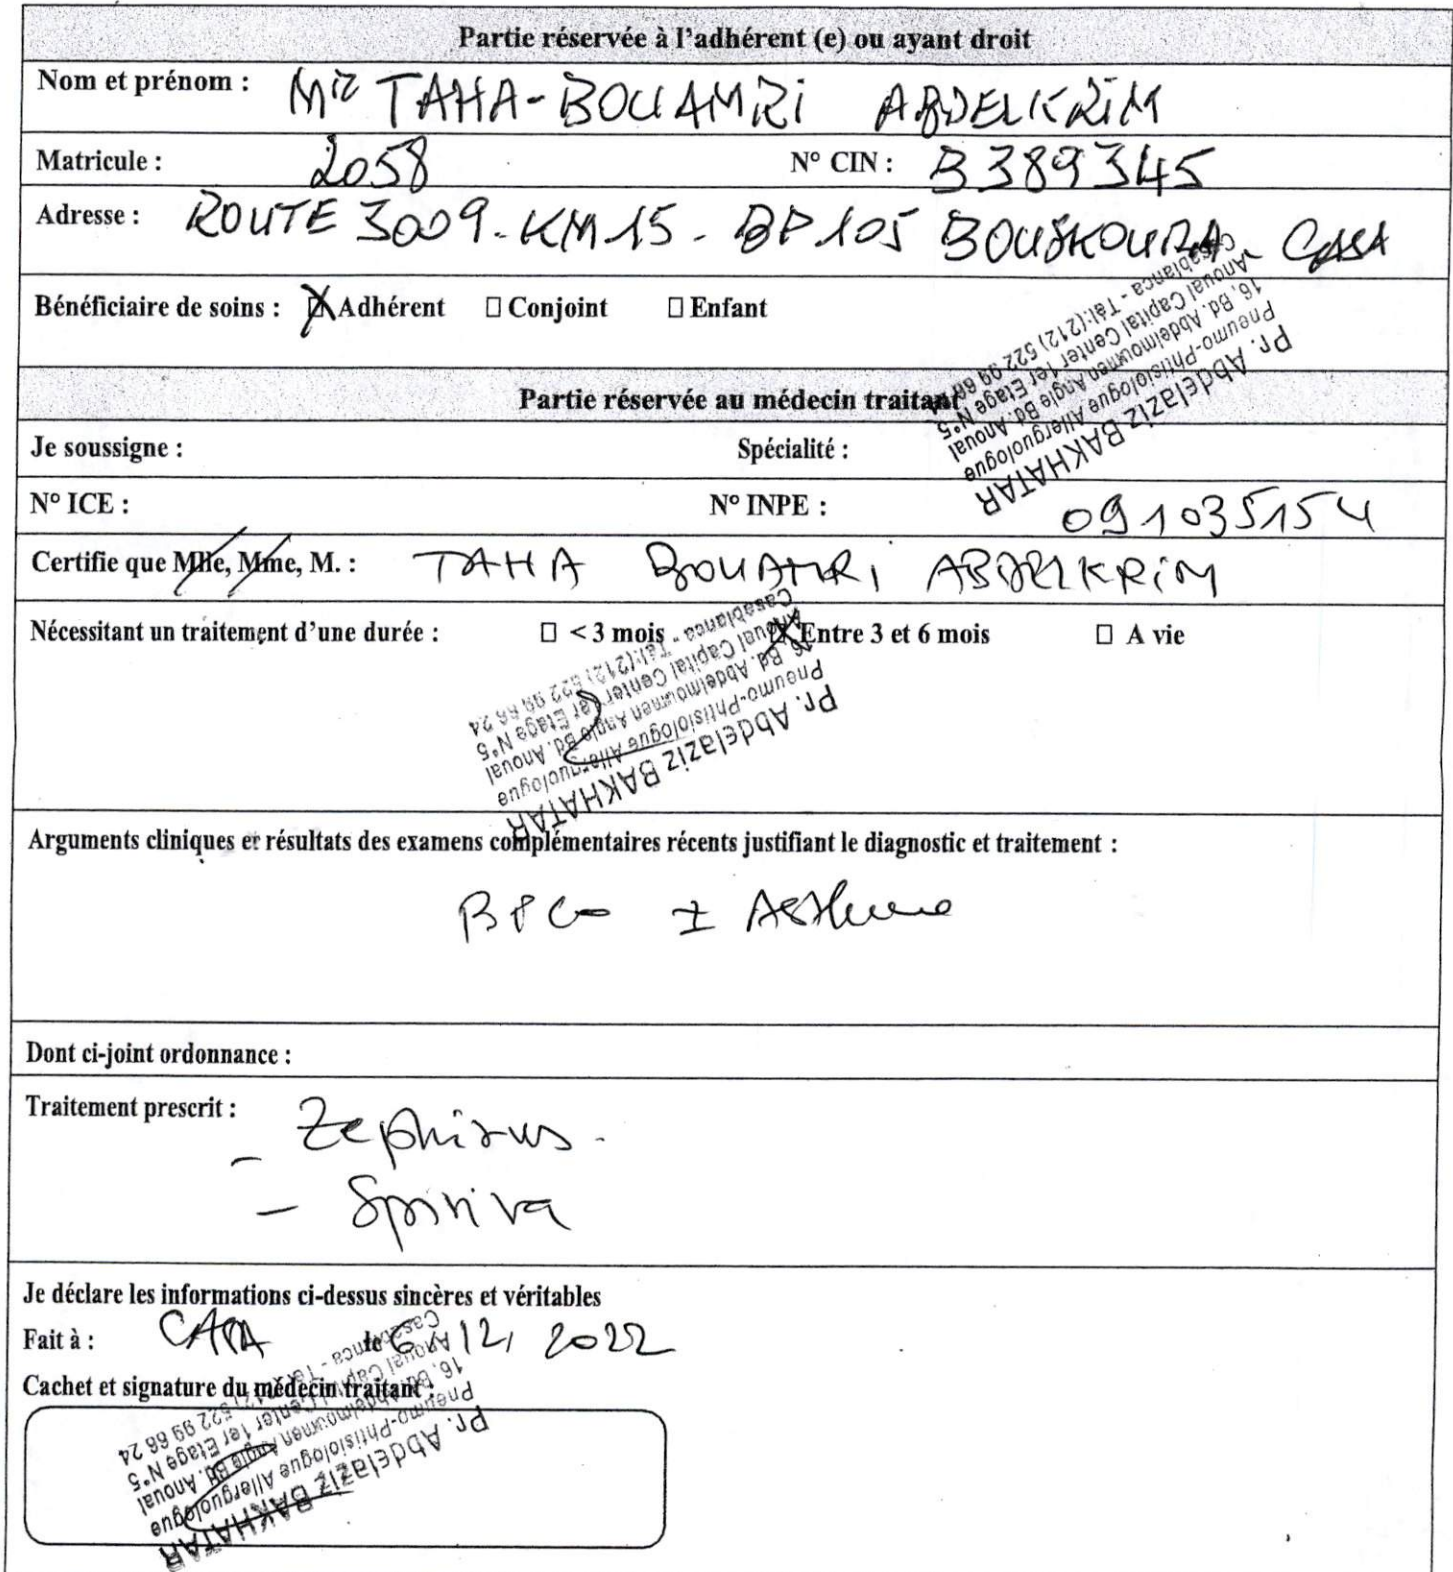 Partie réservée à l'adhérent (e) ou ayant droit
Nom et prénom : Mr TAHA-BOUAMRI ABDELKRIM
Matricule : 2058 N° CIN : B389345
Adresse : ROUTE 3009-KM15-BP105 BOUSKOURA-CASA
Bénéficiaire de soins : ☒ Adhérent □ Conjoint □ Enfant
Pr. Abdelaziz BAKHATAR
Pneumo-Phtisiologue Allerguologue
16, Bd. Abdelmoumen Angle Bd. Anoual
Anoual Capital Center 1er Etage N°5
Casablanca - Tél:(212) 522 99 66
Partie réservée au médecin traitant
Je soussigne : Spécialité :
N° ICE : N° INPE : 091035154
Certifie que Mlle, Mme, M. : TAHA BOUAMRI ABDELKRIM
Nécessitant un traitement d'une durée : □ < 3 mois ☒ Entre 3 et 6 mois □ A vie
Pr. Abdelaziz BAKHATAR
Pneumo-Phtisiologue Allerguologue
16, Bd. Abdelmoumen Angle Bd. Anoual
Anoual Capital Center 1er Etage N°5
Casablanca - Tél:(212) 522 99 66 24
Arguments cliniques et résultats des examens complémentaires récents justifiant le diagnostic et traitement :
BPCO ± Asthme
Dont ci-joint ordonnance :
Traitement prescrit :
- Zephirus.
- Spiriva
Je déclare les informations ci-dessus sincères et véritables
Fait à : CASA le 6/12/2022
Cachet et signature du médecin traitant :
Pr. Abdelaziz BAKHATAR
Pneumo-Phtisiologue Allerguologue
16, Bd. Abdelmoumen Angle Bd. Anoual
Anoual Capital Center 1er Etage N°5
Casablanca - Tél:(212) 522 99 66 24